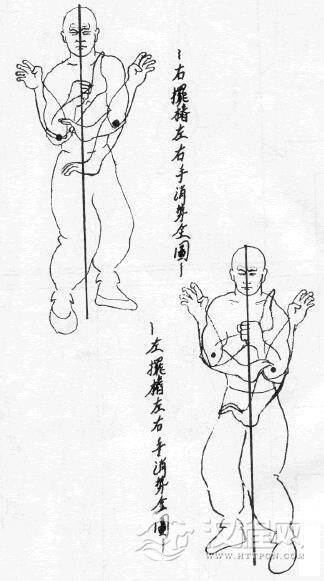 右擺樁左右手消勢全圖
左擺樁左右手消勢全圖
汉程网
WWW.HTTPCN.COM